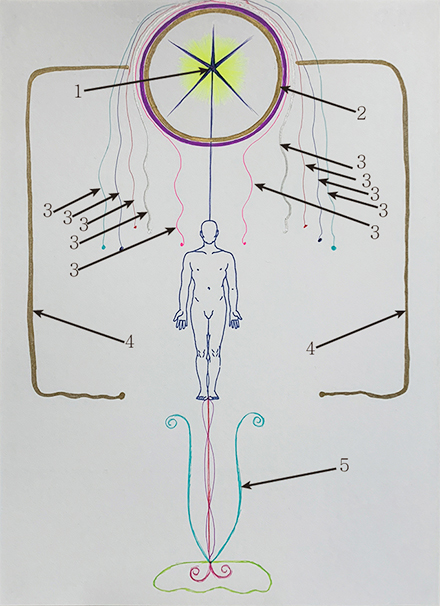 1
2
3
3
3
3
3
3
3
3
3
3
4
4
5